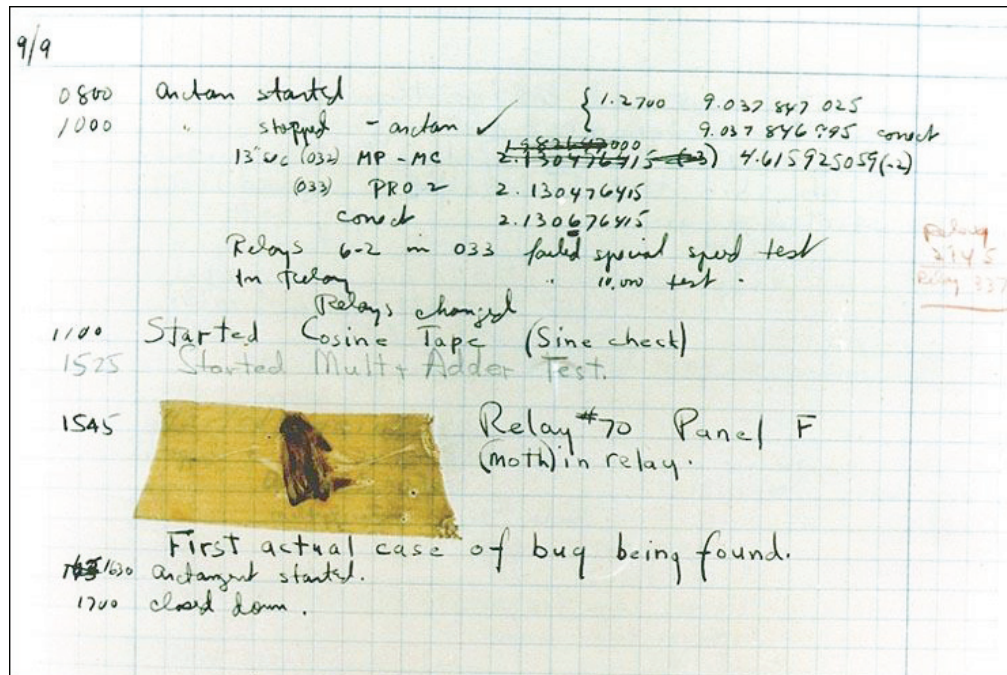 9/9
0800 arctan started { 1.2700 9.037 847 025
1000 " stopped - arctan ✓ 9.037 846 795 correct
13"uc (032) MP - MC 1.982647000 2.130476415 (-3) 4.615925059(-2)
(033) PRO 2 2.130476415
correct 2.130676415
Relays 6-2 in 033 failed special speed test
In relay " 10.000 test .
Relays changed
Relay
Relay 337
1100 Started Cosine Tape (Sine check)
1525 Started Mult + Adder Test.
1545 Relay #70 Panel F
(moth) in relay.
First actual case of bug being found.
1630 arctangent started.
1700 closed down .